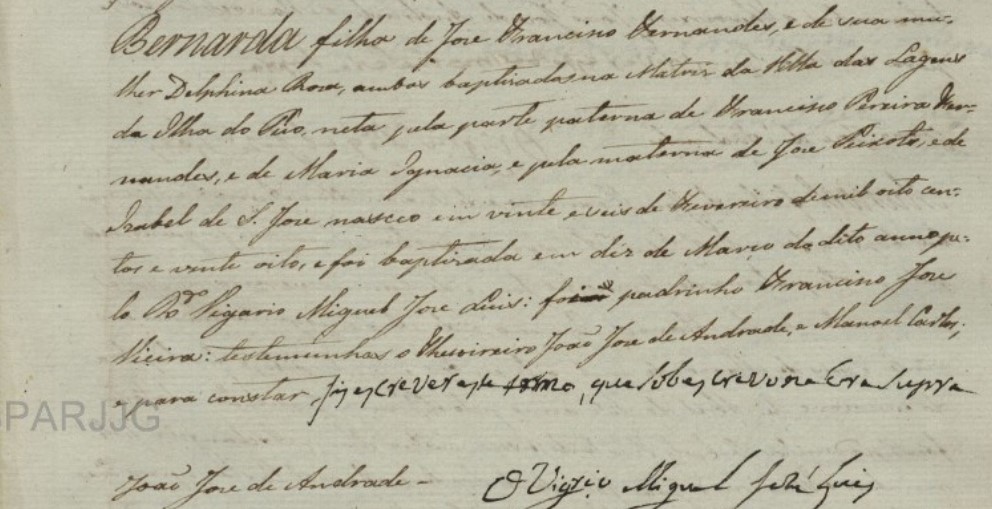 Bernarda filha de Joze Francisco Fernandes, e de sua mu-
lher Delphina Roza, ambos baptizados na Matriz da Villa das Lagens
da Ilha do Pico, neta pela parte paterna de Francisco Pereira Fer-
nandes, e de Maria Ignacia, e pela materna de Joze Peixoto, e de
Izabel de S. Joze nasceo em vinte e seis de Fevereiro de mil oito cen-
tos e vinte oito, e foi baptizada em dez de Março do dito anno pe-
lo Rdo Vigario Miguel Joze Luis: foi padrinho Francisco Joze
Vieira: testemunhas o Thezoireiro João Joze de Andrade, e Manoel Carlos,
e para constar fiz escrever este termo, que sobescrevo na Era Supra
PARJJG
João Joze de Andrade -
O Vigrio Miguel José Luis